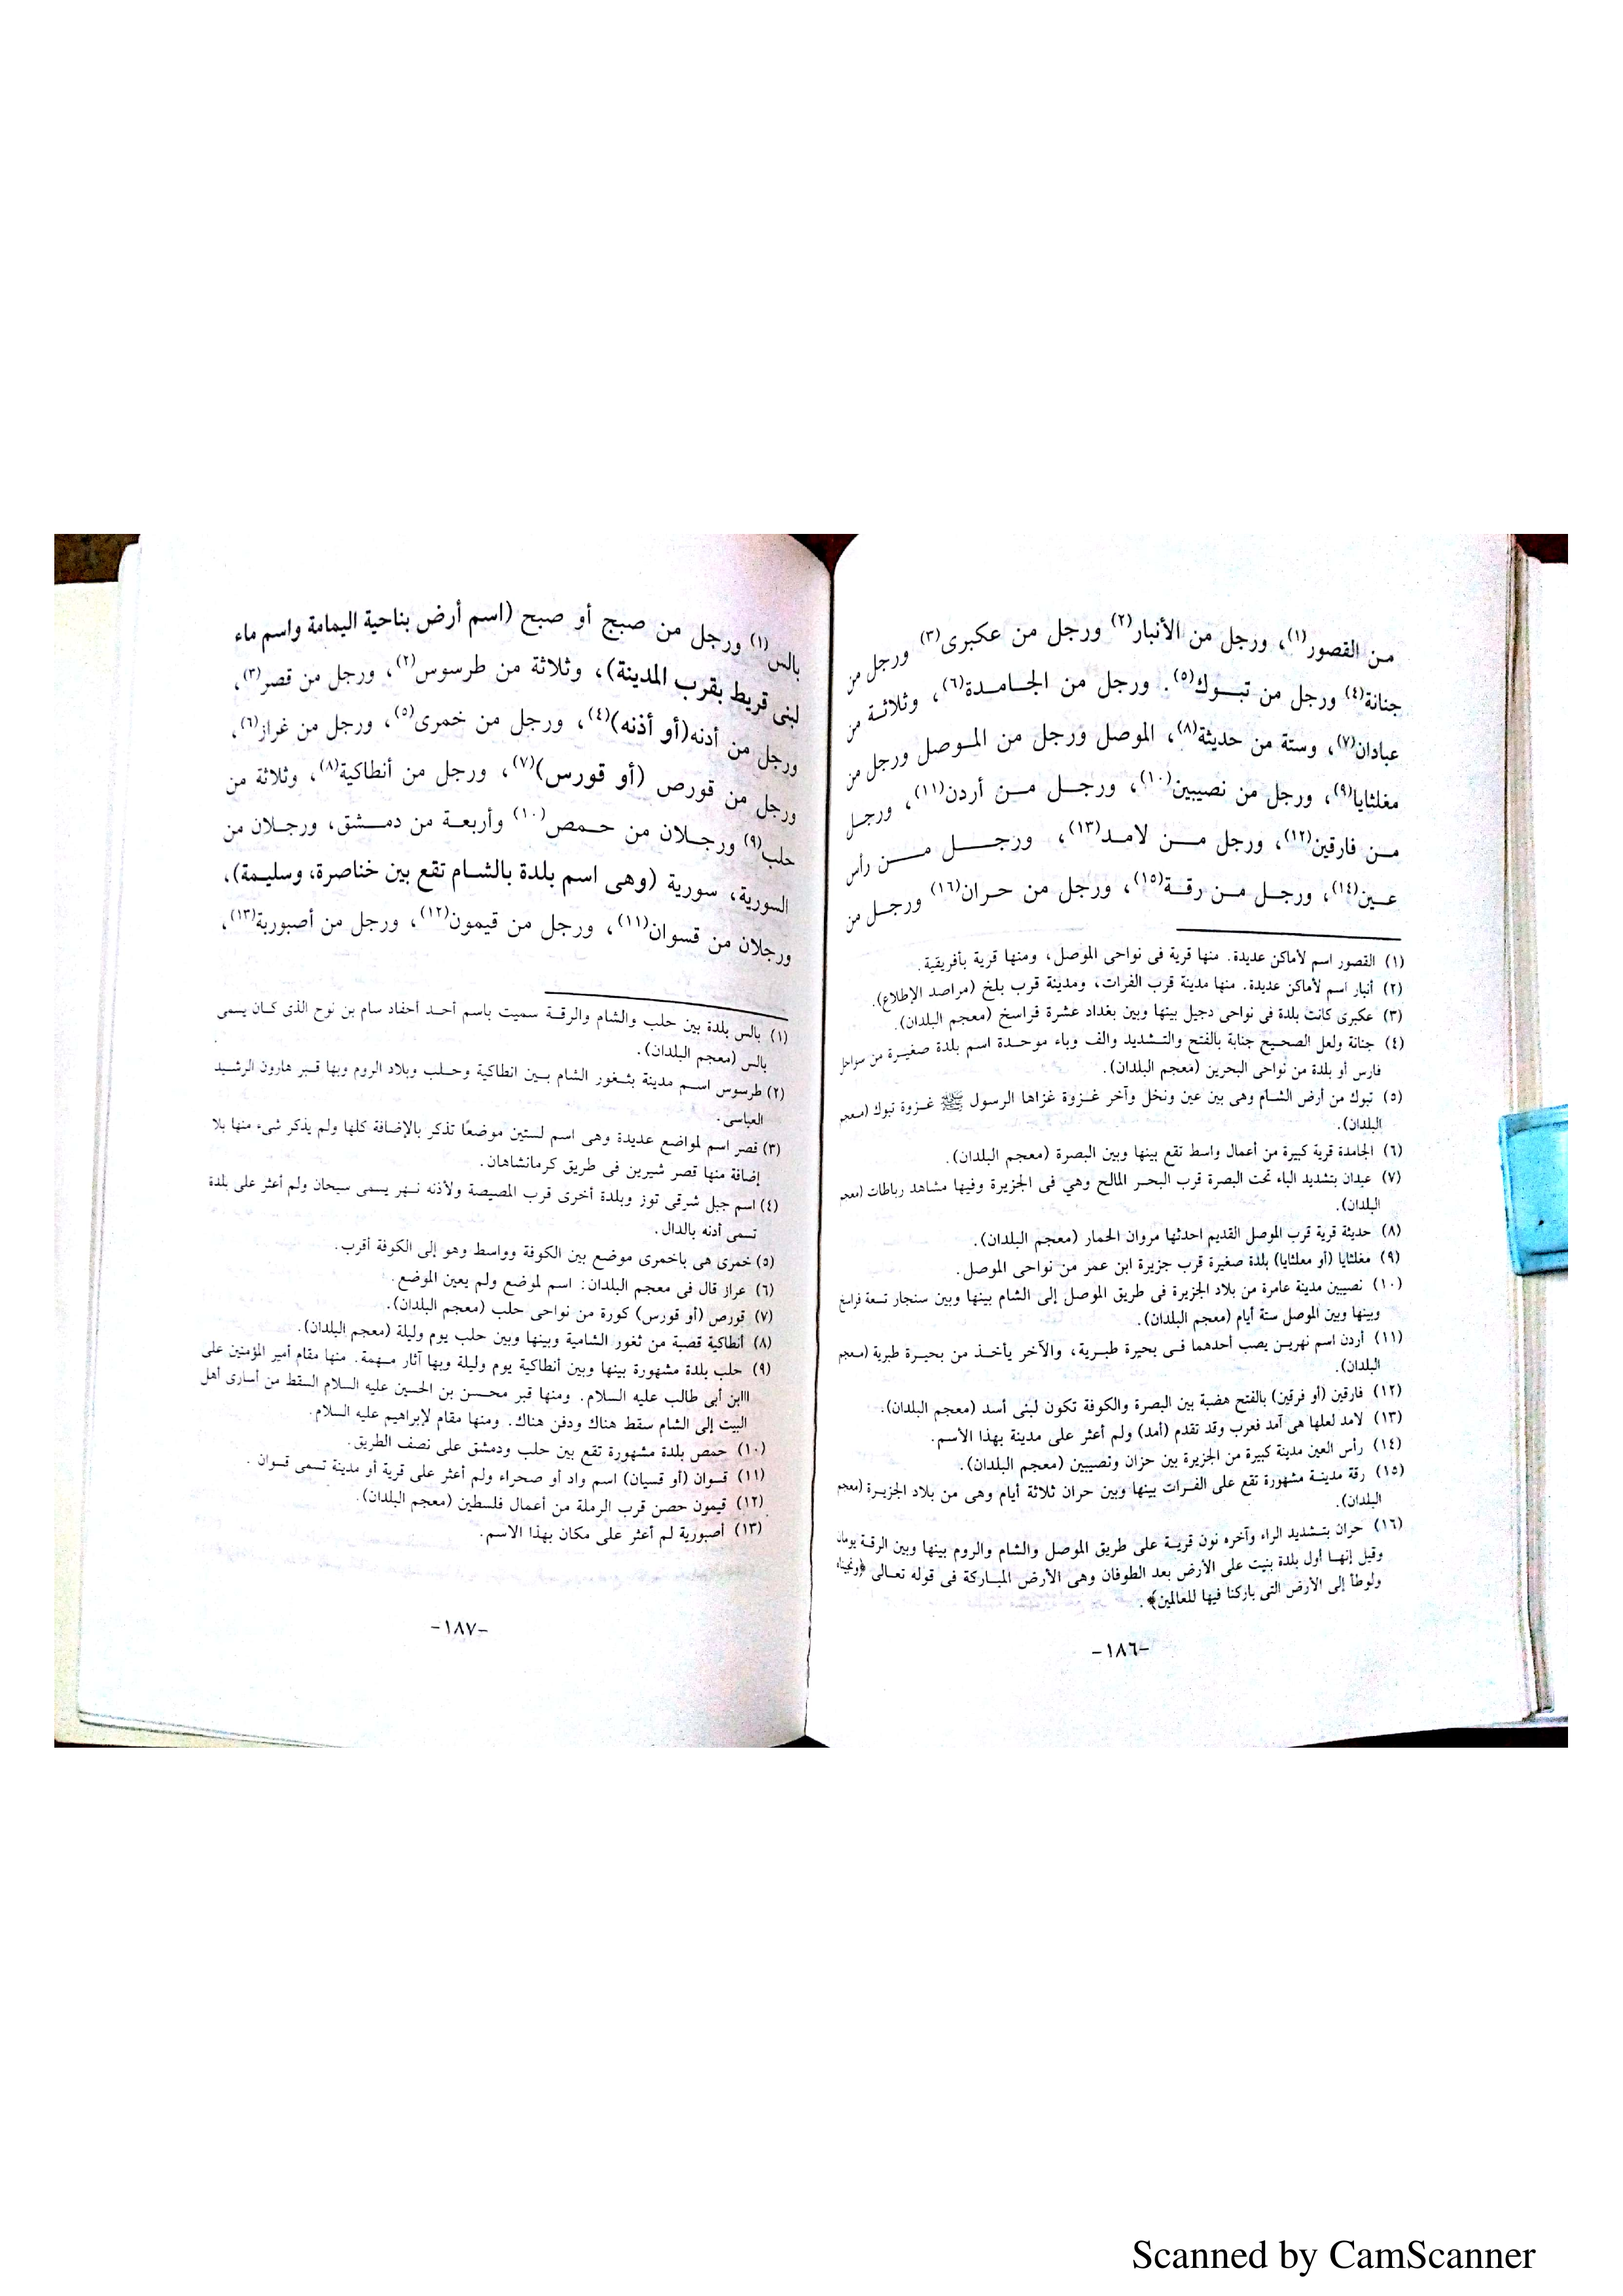 من القصور(١)، ورجل من الأنبار(٢) ورجل من عكبرى(٣) ورجل من
جنانة(٤) ورجل من تبوك(٥). ورجل من الجامدة(٦)، وثلاثة من
عبادان(٧)، وستة من حديثة(٨)، الموصل ورجل من الموصل ورجل من
مغلثايا(٩)، ورجل من نصيبين(١٠)، ورجل من أردن(١١)، ورجل
من فارقين(١٢)، ورجل من لامد(١٣)، ورجل من رأس
عين(١٤)، ورجل من رقة(١٥)، ورجل من حران(١٦) ورجل من
(١) القصور اسم لأماكن عديدة. منها قرية فى نواحى الموصل، ومنها قرية بأفريقية.
(٢) أنبار اسم لأماكن عديدة. منها مدينة قرب الفرات، ومدينة قرب بلخ (مراصد الإطلاع).
(٣) عكبرى كانت بلدة فى نواحى دجيل بينها وبين بغداد عشرة فراسخ (معجم البلدان).
(٤) جنانة ولعل الصحيح جنابة بالفتح والتشديد والف وباء موحدة اسم بلدة صغيرة من سواحل
فارس أو بلدة من نواحى البحرين (معجم البلدان).
(٥) تبوك من أرض الشام وهى بين عين ونخل وآخر غزوة غزاها الرسول ﷺ غزوة تبوك (معجم
البلدان).
(٦) الجامدة قرية كبيرة من أعمال واسط تقع بينها وبين البصرة (معجم البلدان).
(٧) عبدان بتشديد الباء تحت البصرة قرب البحر المالح وهي فى الجزيرة وفيها مشاهد رباطات (معجم
البلدان).
(٨) حديثة قرية قرب الموصل القديم احدثها مروان الحمار (معجم البلدان).
(٩) مغلثايا (أو معلثايا) بلدة صغيرة قرب جزيرة ابن عمر من نواحى الموصل.
(١٠) نصيبين مدينة عامرة من بلاد الجزيرة فى طريق الموصل إلى الشام بينها وبين سنجار تسعة فراسخ
وبينها وبين الموصل ستة أيام (معجم البلدان).
(١١) أردن اسم نهرين يصب أحدهما فى بحيرة طبرية، والآخر يأخذ من بحيرة طبرية (معجم
البلدان).
(١٢) فارقين (أو فرقين) بالفتح هضبة بين البصرة والكوفة تكون لبنى أسد (معجم البلدان).
(١٣) لامد لعلها هى آمد فعرب وقد تقدم (أمد) ولم أعثر على مدينة بهذا الأسم.
(١٤) رأس العين مدينة كبيرة من الجزيرة بين حزان ونصيبين (معجم البلدان).
(١٥) رقة مدينة مشهورة تقع على الفرات بينها وبين حران ثلاثة أيام وهى من بلاد الجزيرة (معجم
البلدان).
(١٦) حران بتشديد الراء وآخره نون قرية على طريق الموصل والشام والروم بينها وبين الرقة يومان
وقيل إنها أول بلدة بنيت على الأرض بعد الطوفان وهى الأرض المباركة فى قوله تعالى ﴿ونجيناه
ولوطاً إلى الأرض التى باركنا فيها للعالمين﴾.
-١٨٦-
بالس(١) ورجل من صبج أو صبح (اسم أرض بناحية اليمامة واسم ماء
لبنى قريط بقرب المدينة)، وثلاثة من طرسوس(٢)، ورجل من قصر(٣)،
ورجل من أدنه(أو أذنه)(٤)، ورجل من خمرى(٥)، ورجل من غراز(٦)،
ورجل من قورص (أو قورس)(٧)، ورجل من أنطاكية(٨)، وثلاثة من
حلب(٩) ورجلان من حمص(١٠) وأربعة من دمشق، ورجلان من
السورية، سورية (وهى اسم بلدة بالشام تقع بين خناصرة، وسليمة)،
ورجلان من قسوان(١١)، ورجل من قيمون(١٢)، ورجل من أصبورية(١٣)،
(١) بالس بلدة بين حلب والشام والرقة سميت باسم أحد أحفاد سام بن نوح الذى كان يسمى
بالس (معجم البلدان).
(٢) طرسوس اسم مدينة بثغور الشام بين انطاكية وحلب وبلاد الروم وبها قبر هارون الرشيد
العباسى.
(٣) قصر اسم لمواضع عديدة وهى اسم لستين موضعًا تذكر بالإضافة كلها ولم يذكر شىء منها بلا
إضافة منها قصر شيرين فى طريق كرمانشاهان.
(٤) اسم جبل شرقى توز وبلدة أخرى قرب المصيصة ولأذنه نهر يسمى سبحان ولم أعثر على بلدة
تسمى أدنه بالدال.
(٥) خمرى هى باخمرى موضع بين الكوفة وواسط وهو إلى الكوفة أقرب.
(٦) عراز قال فى معجم البلدان: اسم لموضع ولم يعين الموضع.
(٧) قورص (أو قورس) كورة من نواحى حلب (معجم البلدان).
(٨) أنطاكية قصبة من ثغور الشامية وبينها وبين حلب يوم وليلة (معجم البلدان).
(٩) حلب بلدة مشهورة بينها وبين أنطاكية يوم وليلة وبها آثار مهمة. منها مقام أمير المؤمنين على
اابن أبى طالب عليه السلام. ومنها قبر محسن بن الحسين عليه السلام السقط من أسارى أهل
البيت إلى الشام سقط هناك ودفن هناك. ومنها مقام لإبراهيم عليه السلام.
(١٠) حمص بلدة مشهورة تقع بين حلب ودمشق على نصف الطريق.
(١١) قسوان (أو قسيان) اسم واد أو صحراء ولم أعثر على قرية أو مدينة تسمى قسوان.
(١٢) قيمون حصن قرب الرملة من أعمال فلسطين (معجم البلدان).
(١٣) أصبورية لم أعثر على مكان بهذا الاسم.
-١٨٧-
Scanned by CamScanner